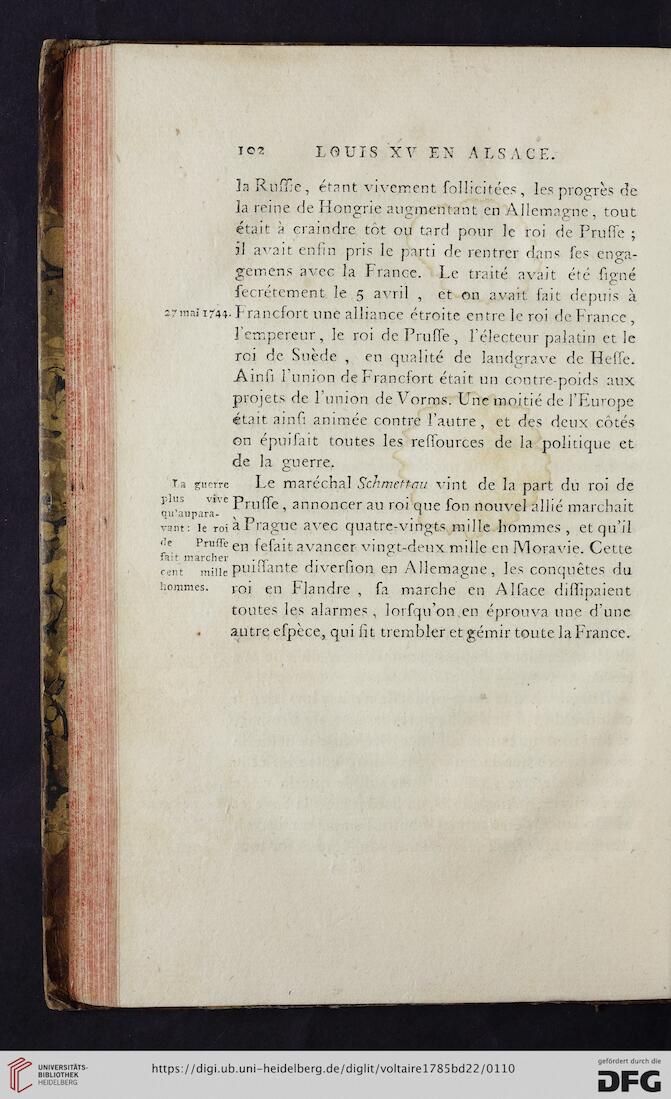 102 LOUIS XV EN ALSACE.
la Ruſſie, étant vivement ſollicitées, les progrès de
la reine de Hongrie augmentant en Allemagne, tout
était à craindre tôt ou tard pour le roi de Pruſſe ;
il avait enfin pris le parti de rentrer dans ſes enga-
gemens avec la France. Le traité avait été ſigné
ſecrétement le 5 avril , et on avait fait depuis à
27 mai 1744.
Francfort une alliance étroite entre le roi de France,
l'empereur, le roi de Pruſſe, l'électeur palatin et le
roi de Suède , en qualité de landgrave de Heſſe.
Ainſi l'union de Francfort était un contre-poids aux
projets de l'union de Vorms. Une moitié de l'Europe
était ainſi animée contre l'autre , et des deux côtés
on épuiſait toutes les reſſources de la politique et
de la guerre.
La guerre
plus vive
qu'aupara-
vant: le roi
de Pruſſe
fait marcher
cent mille
hommes.
Le maréchal Schmettau vint de la part du roi de
Pruſſe, annoncer au roi que ſon nouvel allié marchait
à Prague avec quatre-vingts mille hommes , et qu'il
en feſait avancer vingt-deux mille en Moravie. Cette
puiſſante diverſion en Allemagne, les conquêtes du
roi en Flandre , ſa marche en Alſace diſſipaient
toutes les alarmes, lorſqu'on en éprouva une d'une
autre eſpèce, qui fit trembler et gémir toute la France.
UNIVERSITÄTS-
BIBLIOTHEK
HEIDELBERG
https://digi.ub.uni-heidelberg.de/diglit/voltaire1785bd22/0110
gefördert durch die
DFG